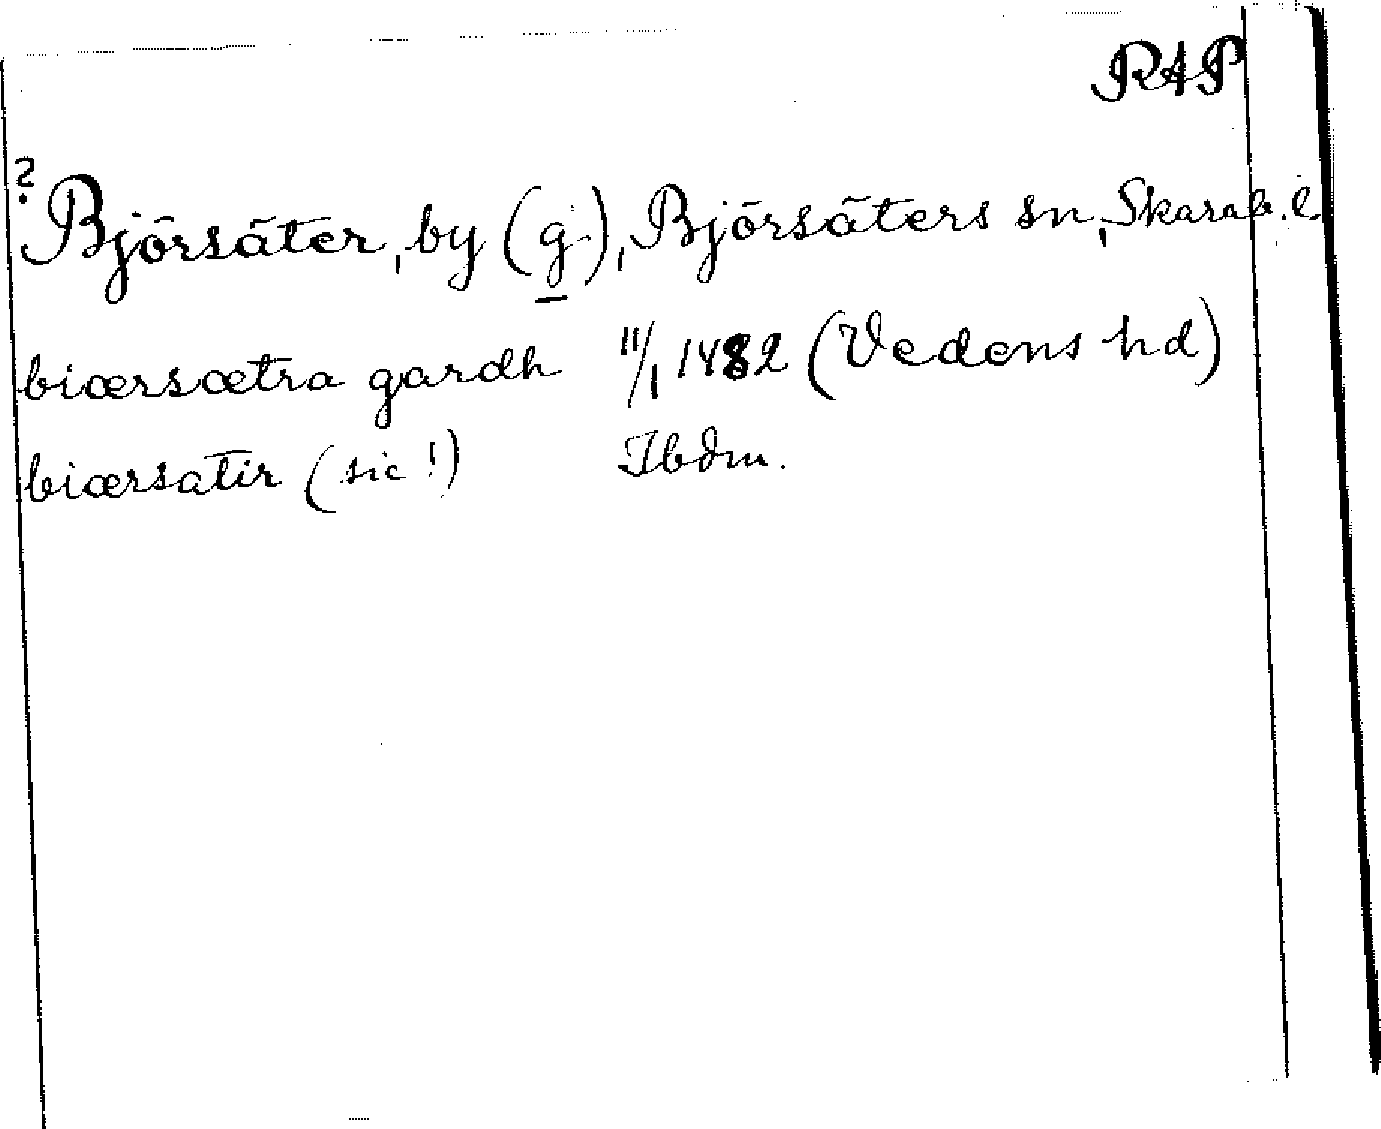 RAP
? Björsäter, by (g), Björsäters sn, Skarab. l.
biærsætra gardh 11/1 1482 (Vedens hd)
biærsatir (sic!) Ibdm.